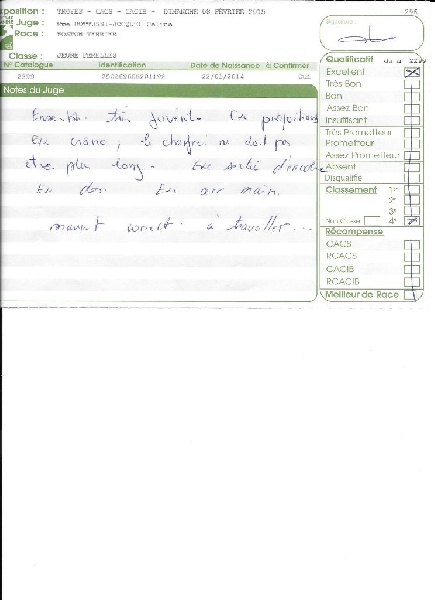 position : TROYES - CACS - CACIB - DIMANCHE 08 FÉVRIER 2015
296
Juge : Mme Céline
Race : BOSTON TERRIER
Classe : JEUNE FEMELLES
N° Catalogue Identification Date de Naissance à Confirmer
2299 22/01/2014 Oui
Notes du Juge
Ensemble très juvénile. Ces proportions
de crâne, le chanfrein ne doit pas
être plus long. sortie d'encolure
En dos. En arr main.
mouvt correct. à travailler...
Signature :
Qualificatif du n° 2299
Excellent
Très Bon
Bon
Assez Bon
Insuffisant
Très Prometteur
Prometteur
Assez Prometteur
Absent
Disqualifié
Classement 1er
2e
3e
Non Classé 4e
Récompense
CACS
RCACS
CACIB
RCACIB
Meilleur de Race